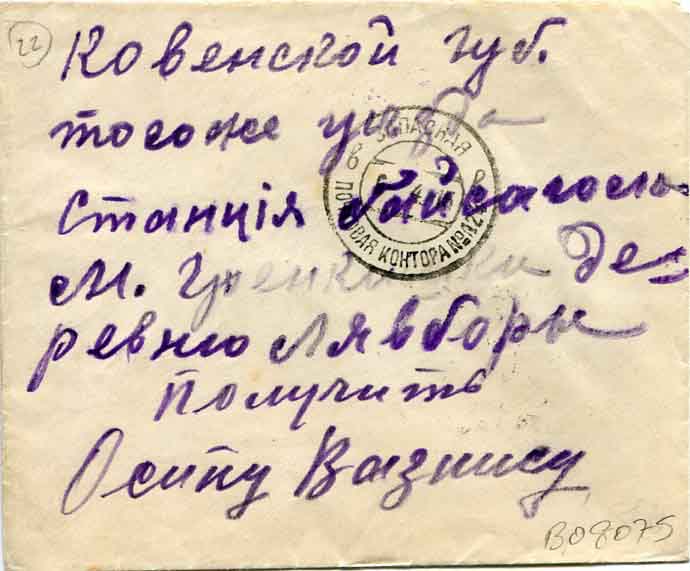 22
Ковенской губ.
тогоже
Станція байсагол-
м. Де-
ревню Лявборы
Получить
Осипу Вазнису
ЗАПАСНАЯ
ПОЧТОВАЯ КОНТОРА №
B08075